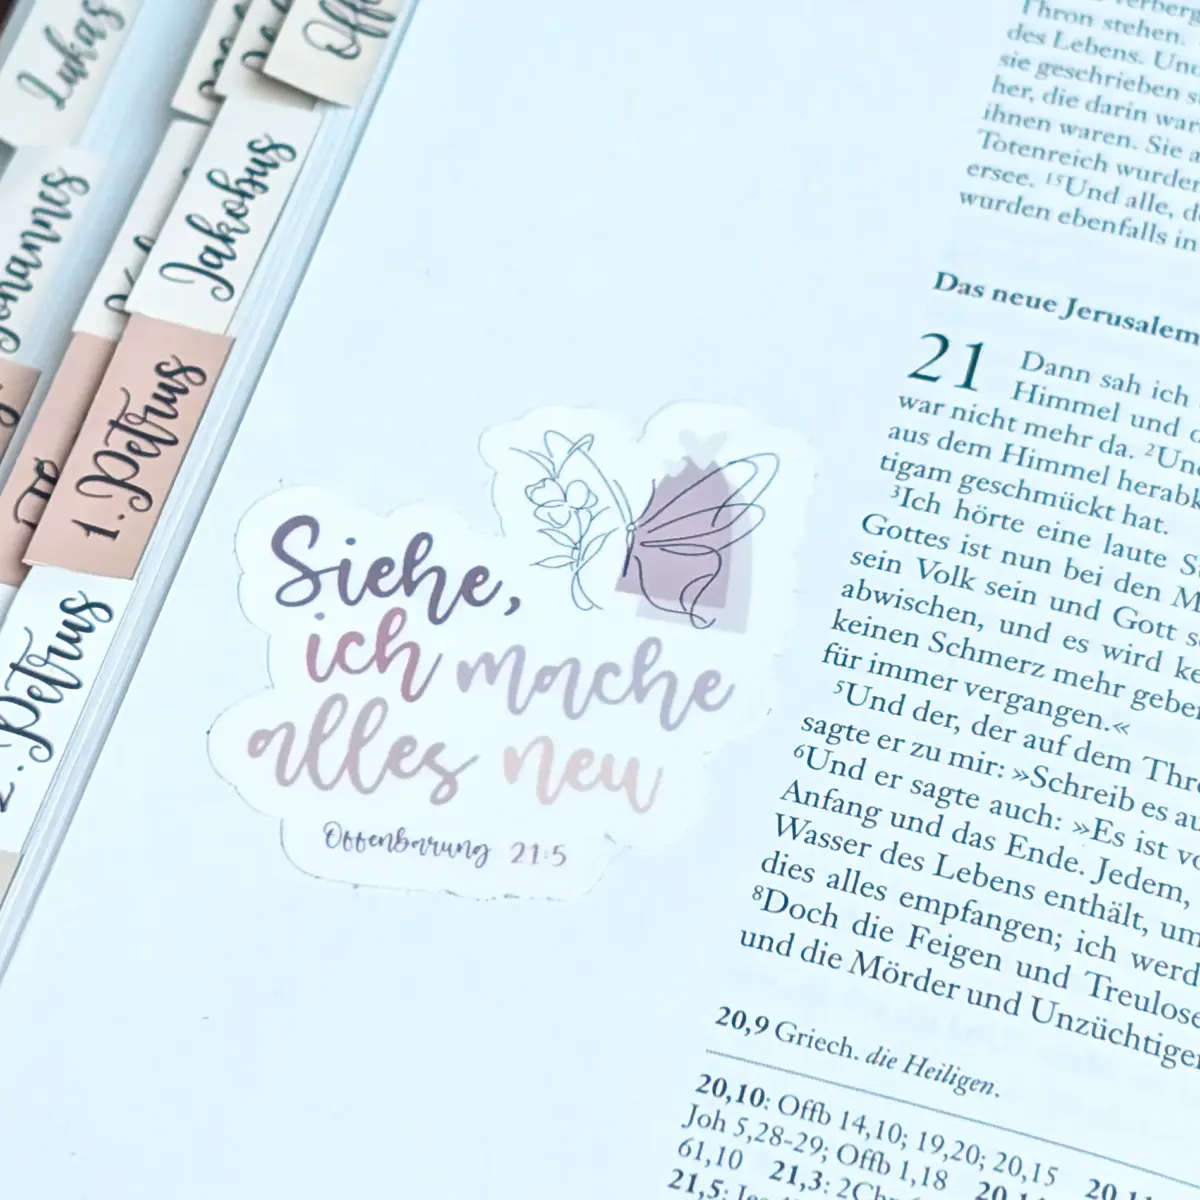 Lukas
Johannes
Jakobus
1. Petrus
2. Petrus
Siehe,
ich mache
alles neu
Offenbarung 21:5
Thron stehen.
des Lebens. Und
sie geschrieben
her, die darin
ihnen waren. Sie
Totenreich wurde
ersee. ¹⁵Und alle,
wurden ebenfalls in
Das neue Jerusalem
21 Dann sah ich
Himmel und
war nicht mehr da. ²Un
aus dem Himmel herab
tigam geschmückt hat.
³Ich hörte eine laute
Gottes ist nun bei den
sein Volk sein und Gott
abwischen, und es wird
keinen Schmerz mehr
für immer vergangen.«
⁵Und der, der auf dem
sagte er zu mir: »Schreib es
⁶Und er sagte auch: »Es ist
Anfang und das Ende. Jedem,
Wasser des Lebens enthält,
dies alles empfangen; ich
⁸Doch die Feigen und Treulose
und die Mörder und Unzüchtige
20,9 Griech. die Heiligen.
20,10: Offb 14,10; 19,20; 20,15
Joh 5,28-29; Offb 1,18
61,10 21,3:
21,5: